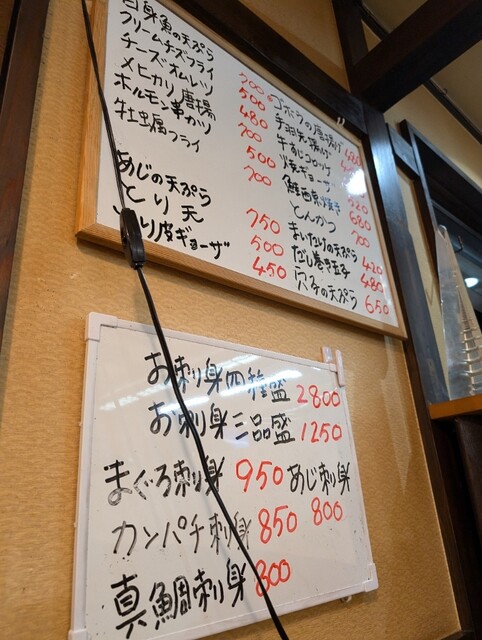 白身魚の天ぷら 700
クリームチーズフライ 500
チーズオムレツ 480
メヒカリ唐揚 700
ホルモン串カツ 500
牡蠣フライ 700
あじの天ぷら 750
とり天 500
とり皮ギョーザ 450
ゴボウの唐揚げ 480
手羽先揚げ
牛すじコロッケ
揚ギョーザ 520
鮭西京焼き 680
とんかつ 700
まいたけの天ぷら 420
だし巻き玉子 480
穴子の天ぷら 650
お刺身四種盛 2800
お刺身三品盛 1250
まぐろ刺身 950 あじ刺身 800
カンパチ刺身 850
真鯛刺身 800